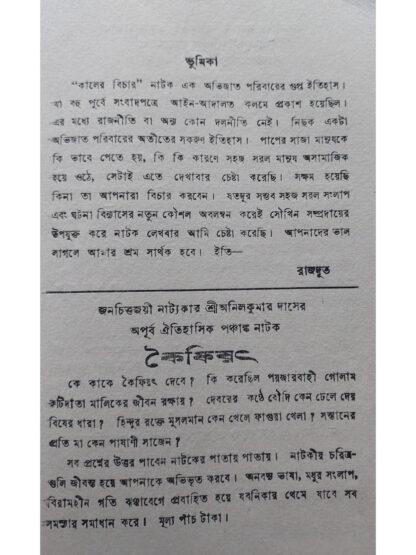 ভূমিকা
“কালের বিচার” নাটক এক অভিজাত পরিবারের গুপ্ত ইতিহাস।
যা বহু পূর্বে সংবাদপত্রে আইন-আদালত কলমে প্রকাশ হয়েছিল।
এর মধ্যে রাজনীতি বা অন্য কোন দলনীতি নেই। নিছক একটা
অভিজাত পরিবারের অতীতের সকরুণ ইতিহাস। পাপের সাজা মানুষকে
কি ভাবে পেতে হয়, কি কি কারণে সহজ সরল মানুষ অসামাজিক
হয়ে ওঠে, সেটাই এতে দেখাবার চেষ্টা করেছি। সক্ষম হয়েছি
কিনা তা আপনারা বিচার করবেন। যতদূর সম্ভব সহজ সরল সংলাপ
এবং ঘটনা বিন্যাসের নতুন কৌশল অবলম্বন করেই সৌখিন সম্প্রদায়ের
উপযুক্ত করে নাটক লেখবার আমি চেষ্টা করেছি। আপনাদের ভাল
লাগলে আমার শ্রম সার্থক হবে। ইতি—
রাজদূত
জনচিত্তজয়ী নাট্যকার শ্রীঅনিলকুমার দাসের
অপূর্ব ঐতিহাসিক পঞ্চাঙ্ক নাটক
কৈফিয়ৎ
কে কাকে কৈফিয়ৎ দেবে? কি করেছিল পয়জারবাহী গোলাম
রুটিদাতা মালিকের জীবন রক্ষায়? দেবরের কণ্ঠে বৌদি কেন ঢেলে দেয়
বিষের ধারা? হিন্দুর রক্তে মুসলমান কেন খেলে ফাগুয়া খেলা? সন্তানের
প্রতি মা কেন পাষাণী সাজেন?
সব প্রশ্নের উত্তর পাবেন নাটকের পাতায় পাতায়। নাটকীয় চরিত্র-
গুলি জীবন্ত হয়ে আপনাকে অভিভূত করবে। অনবদ্য ভাষা, মধুর সংলাপ,
বিরামহীন গতি ঝঞ্ঝাবেগে প্রবাহিত হয়ে যবনিকার থেমে যাবে সব
সমস্যার সমাধান করে। মূল্য পাঁচ টাকা।